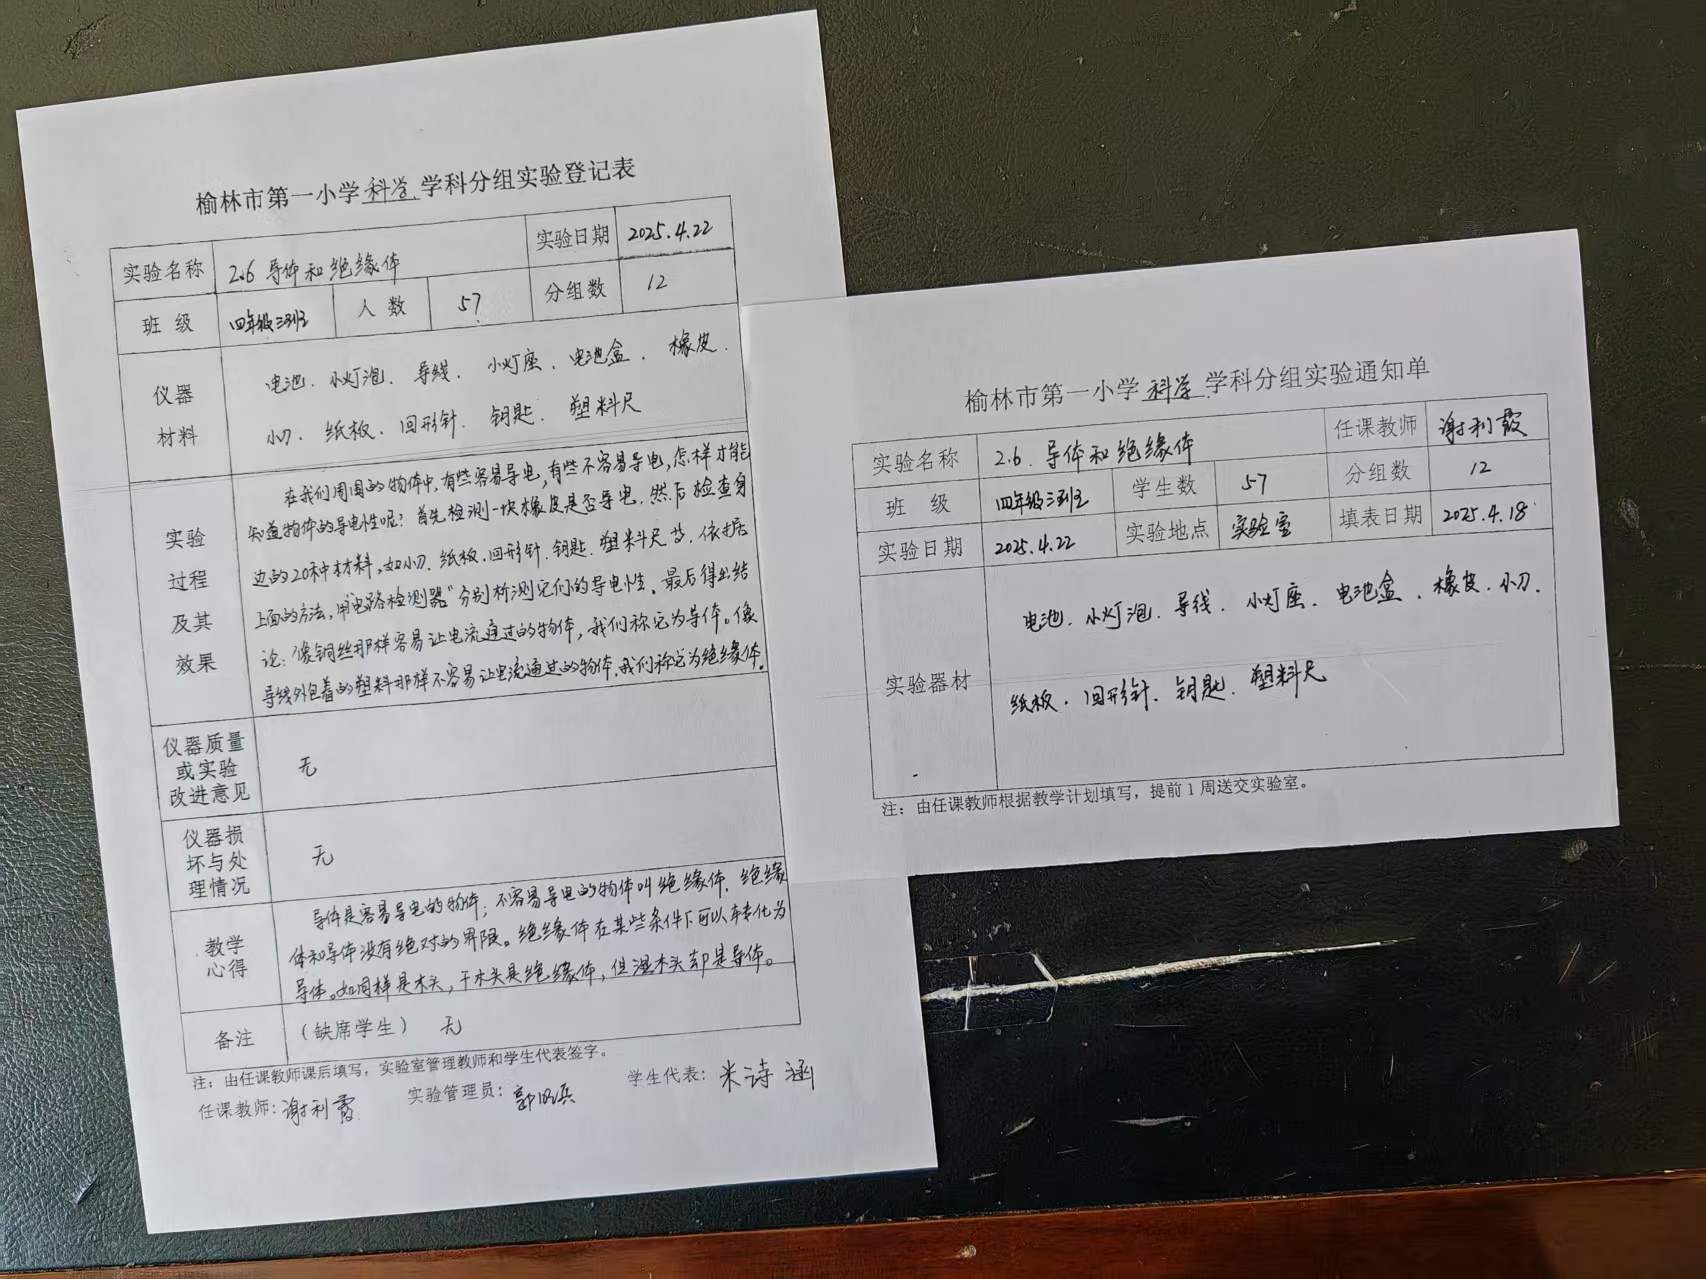 榆林市第一小学科学学科分组实验登记表
实验名称 2.6 导体和绝缘体 实验日期 2025.4.22
班 级 四年级三班 人 数 57 分组数 12
仪器
材料
电池、小灯泡、导线、小灯座、电池盒、橡皮、
小刀、纸板、回形针、钥匙、塑料尺
实验
过程
及其
效果
在我们周围的物体中,有些容易导电,有些不容易导电,怎样才能
知道物体的导电性呢?首先检测一块橡皮是否导电.然后检查身
边的20种材料,如小刀、纸板、回形针、钥匙、塑料尺等.依据
上面的方法,用"电路检测器"分别析测它们的导电性。最后得出结
论:像铜丝那样容易让电流通过的物体,我们称它为导体。像
导线外包着的塑料那样不容易让电流通过的物体,我们称它为绝缘体.
仪器质量
或实验
改进意见
无
仪器损
坏与处
理情况
无
教学
心得
导体是容易导电的物体;不容易导电的物体叫绝缘体.绝缘
体和导体没有绝对的界限。绝缘体在某些条件下可以转化为
导体。如同样是木头,干木头是绝缘体,但湿木头却是导体。
备注 (缺席学生) 无
注:由任课教师课后填写,实验室管理教师和学生代表签字。
任课教师:谢利霞 实验管理员:郭 兵 学生代表:米诗涵
榆林市第一小学科学学科分组实验通知单
实验名称 2.6.导体和绝缘体 任课教师 谢利霞
班 级 四年级三班 学生数 57 分组数 12
实验日期 2025.4.22 实验地点 实验室 填表日期 2025.4.18
实验器材
电池、小灯泡、导线、小灯座、电池盒、橡皮、小刀、
纸板、回形针、钥匙、塑料尺
注:由任课教师根据教学计划填写,提前1周送交实验室。